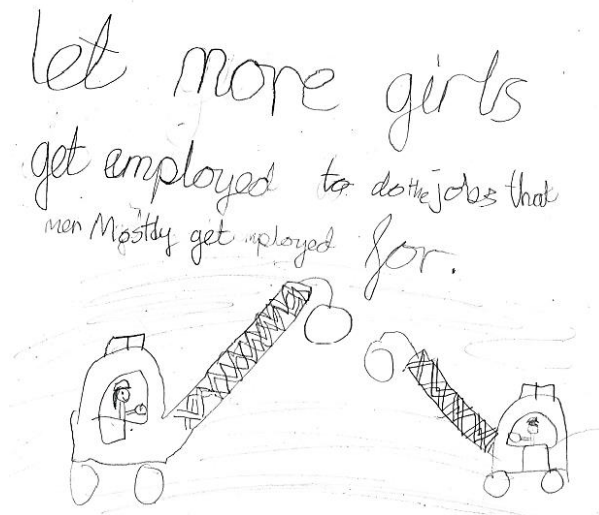 let more girls
get employed to do the jobs that
men Mostly get mployed for.